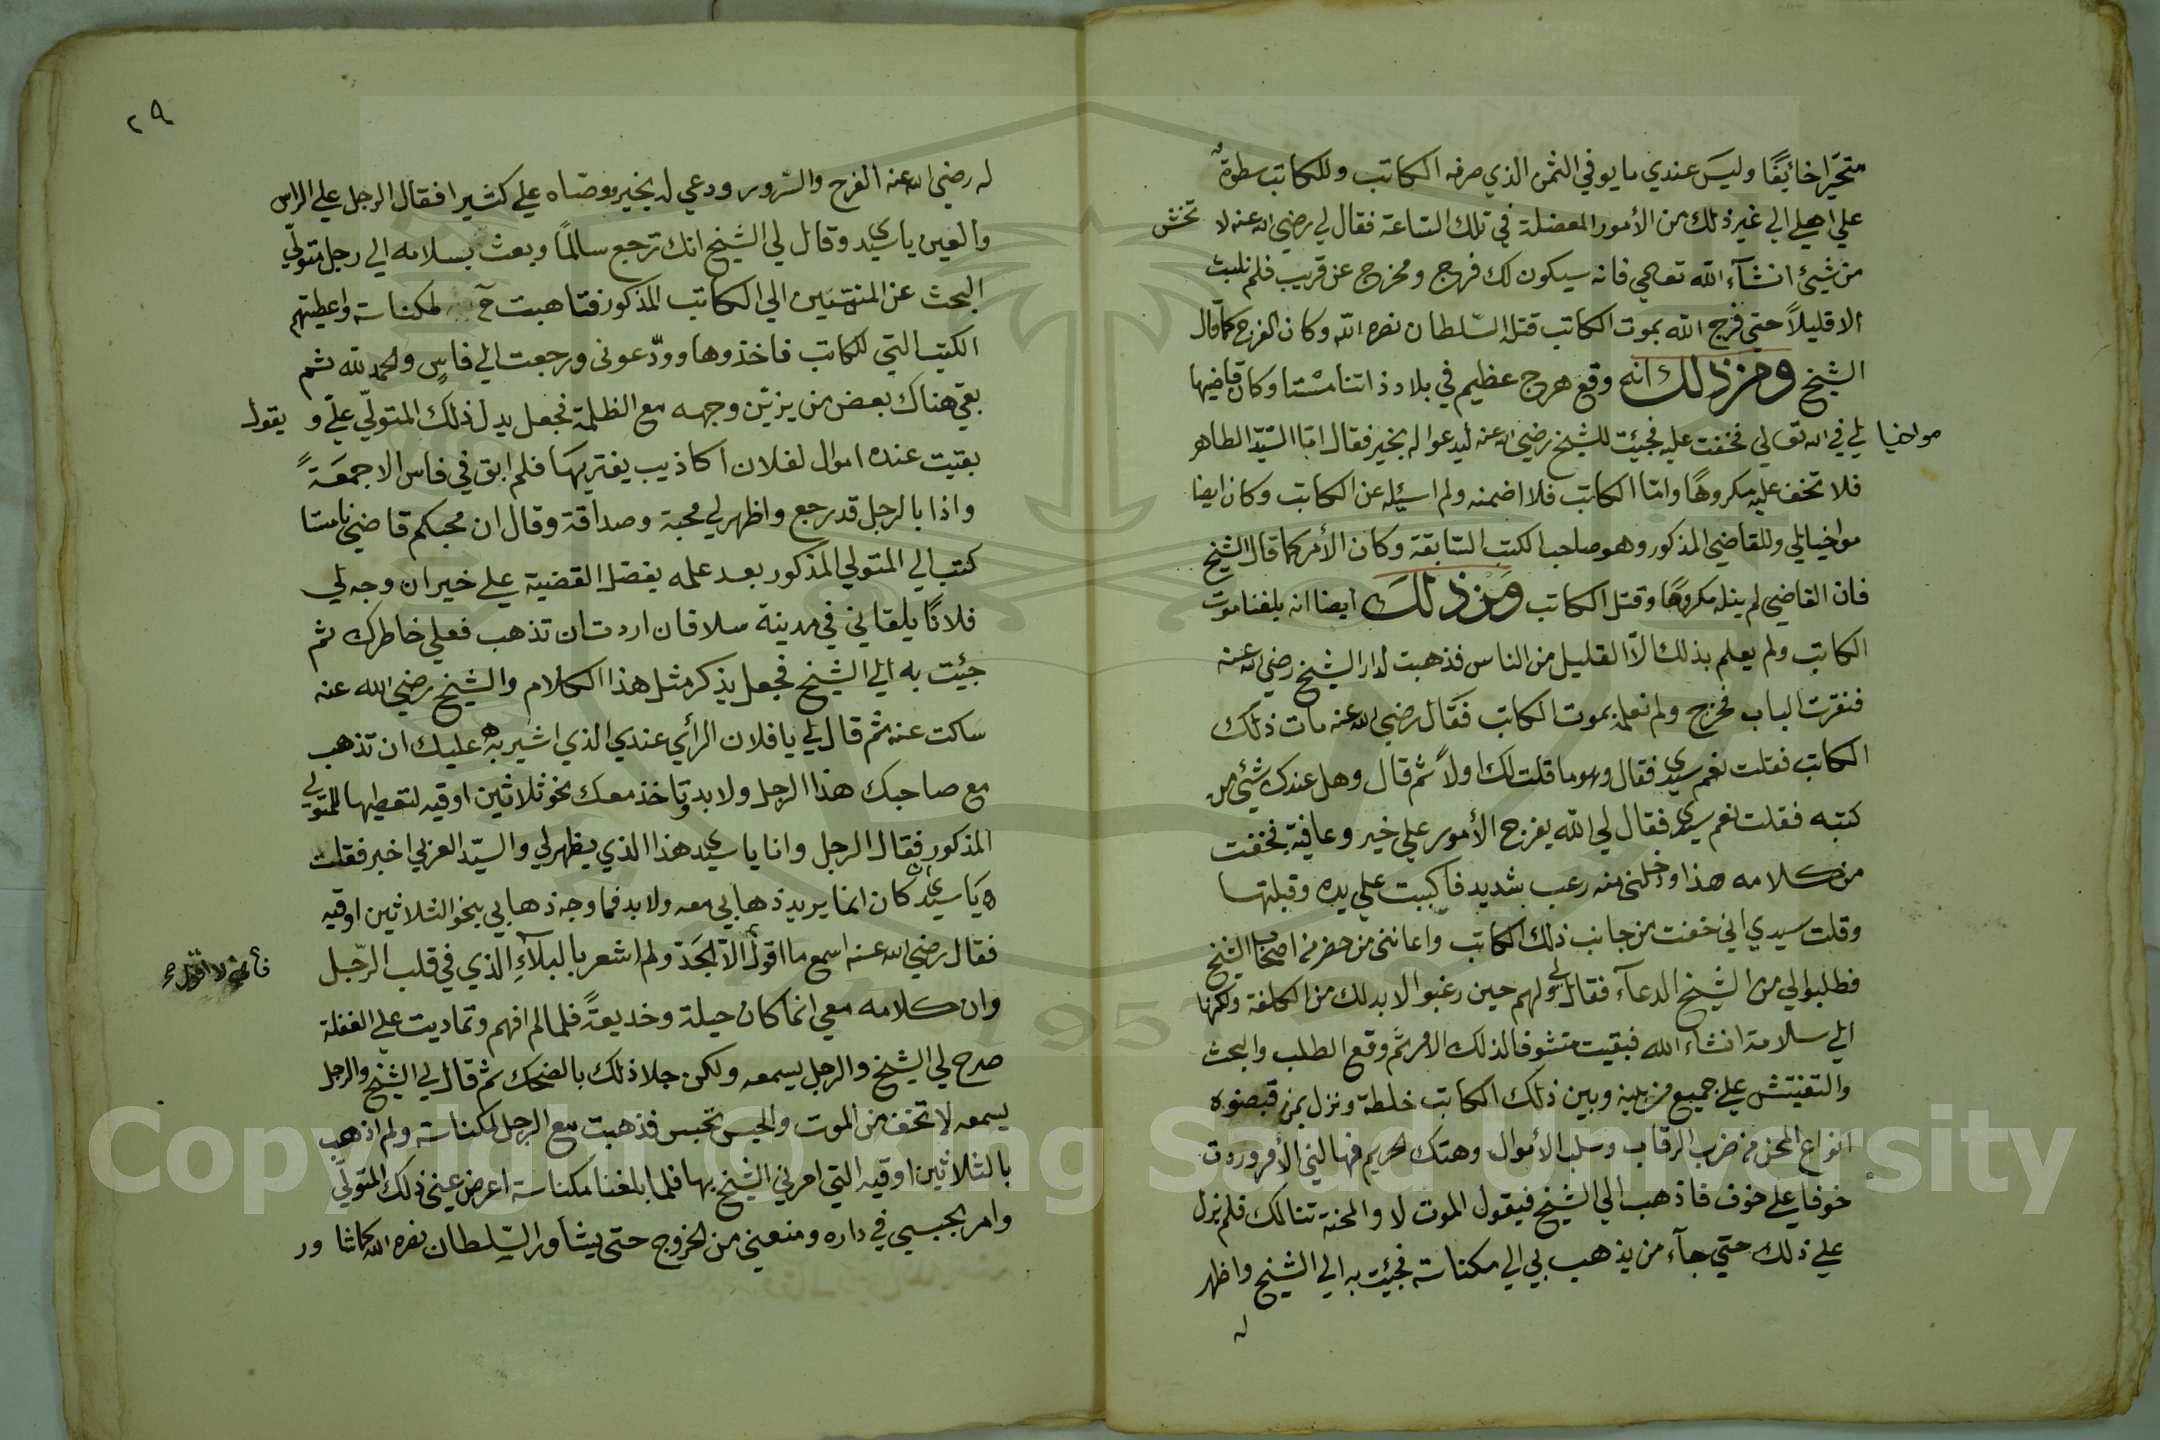 متحيرا خائفًا وليسَ عندي ما يوفي الثمن الذي صرفه الكاتب وللكاتب سطوة
علي اهلي الي غير ذلك من الأمور المعضلة في تلك الساعة فقال لي رضي الله عنه لا تخش
من شيئ انشآء الله تعالي فانه سيكون لك فرج ومخرج عن قريب فلم نلبث
الا قليلاً حتي فرج الله بموت الكاتب قتله السّلطان نصره الله وكان الفرج كما قال
الشيخ ومن ذلك انه وقع هرج عظيم في بلاد ذاتنا مستا وكان قاضيها
مواخيا لي في الله تعالي فخفت عليه فجيئت للشيخ رضي الله عنه ليدعوا له بخير فقال امّا السّيّد الطاهر
فلا تخف عليه مكروهًا وامّا الكاتب فلا اضمنه ولم اسئله عن الكاتب وكان ايضا
مواخيا لي وللقاضي المذكور وهو صاحب الكتب السّابقة وكان الأمر كما قال الشيخ
فان القاضي لم ينله مكروهًا وقتل الكاتب ومن ذلك ايضا انه بلغنا موت
الكاتب ولم يعلم بذلك الّا القليل من الناس فذهبت لدار الشيخ رضي الله عنه
فنقرت الباب فخرج ولم نعلمه بموت الكاتب فقال رضي الله عنه مات ذلك
الكاتب فقلت نعم سيدي فقال وهو ما قلت لك اولاً ثم قال وهل عندك شيئ من
كتبه فقلت نعم سيدي فقال لي الله يفرج الأمور علي خير وعافية فخفت
من كلامه هذا ودخلني منه رعب شديد فاكببت علي يده وقبلتها
وقلت سيدي اني خفت من جانب ذلك الكاتب واعانني من حضر من اصحاب الشيخ
فطلبوا لي من الشيخ الدعآء فقال لي ولهم حين رغبوا لابد لك من الكلفة ولكنها
الي سلامة انشاء الله فبقيت متشوفا لذلك الامر ثم وقع الطلب والبحث
والتفتيش علي جميع من بينه وبين ذلك الكاتب خلطة ونزل بمن قبضوه
انواع المحن من ضرب الرقاب وسلب الأموال وهتك الحريم فهالني الأمر وزدت
خوفا علي خوف فاذهب الي الشيخ فيقول الموت لا والمحنة تنالك فلم نزل
علي ذلك حتي جآء من يذهب بي الي مكناسة فجئت به الي الشيخ واظهر
له
٢٩
له رضي الله عنه الفرح والسّرور ودعي له بخير ووصّاه علي كثيرا فقال الرجل علي الراس
والعين يا سيدي وقال لي الشيخ انك ترجع سالمًا وبعث بسلامه الي رجل متولّي
البحث عن المنتسبين الي الكاتب المذكور فتاهبت لمكناسة واعطيتهم
الكتب التي للكاتب فاخذوها وودّعوني ورجعت الي فاس والحمد لله ثم
بقي هناك بعض من يزيّن وجهه مع الظلمة فجعل يدل ذلك المتولّي عليّ ويقول
بقيت عنده اموال لفلان اكاذيب يفتريها فلم ابق في فاس الا جمعَةً
واذا بالرجل قد رجع واظهر لي محبة وصداقة وقال ان محبكم قاضي تامستا
كتب الي المتولي المذكور بعد علمه بفضل القضية علي خير ان وجه لي
فلانًا يلقاني في مدينة سلا فان اردت ان تذهب فعلي خاطرك ثم
جئيت به الي الشيخ فجعل يذكر مثل هذا الكلام والشيخ رضي الله عنه
ساكت عنه ثم قال لي يا فلان الرأي عندي الذي اشير به عليك ان تذهب
مع صاحبك هذا الرجل ولا بد وتاخذ معك نحو ثلاثين اوقيه لتعطيها للمتولي
المذكور فقال الرجل وانا يا سيدي هذا الذي يظهر لي والسيّد العربي اخبر فقلت
يَا سيدي ان كان انما يريد ذهابي معه ولا بد فما وجه ذهابي بنحو الثلاثين اوقيه
فقال رضي الله عنه اسمع ما اقول الّا لجَدّ ولم اشعر بالبلآءِ الذي في قلب الرّجل
فاني لا اقول
وان كلامه معي انما كان حيلة وخديعةً فلما لم افهم وتماديت علي الغفلة
صرح لي الشيخ والرجل يسمعه ولكن جلا ذلك بالضحك ثم قال لي الشيخ والرجل
يسمعه لا تخف من الموت والحبس تحبس فذهبت مع الرجل لمكناسة ولم اذهب
بالثلاثين اوقيه التي امرني الشيخ بها فلما بلغنا مكناسة اعرض عني ذلك المتولّي
وامر بحبسي في داره ومنعني من الخروج حتي يشآور السّلطان نصره الله كما شاور
Copyright © King Saud University
1957